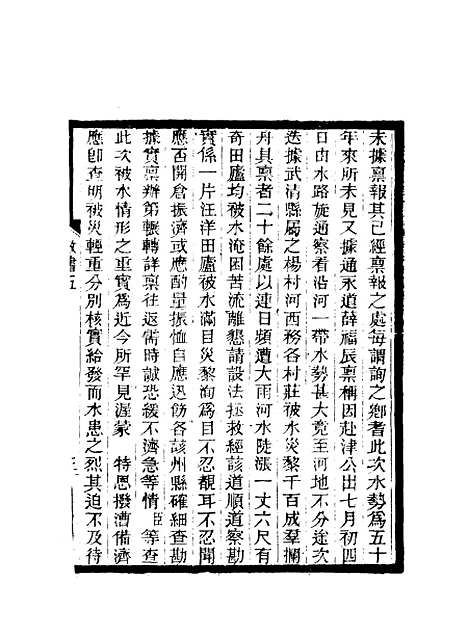 未據稟報其已經稟報之處每謂詢之鄉耆此次水勢爲五十
年來所未見又據通永道薛福辰稟稱因赴津公出七月初四
日由水路旋通察看沿河一帶水勢甚大竟至河地不分途次
迭據武清縣屬之楊村河西務各村莊被水災黎千百成羣攔
舟具稟者二十餘處以連日頻遭大雨河水陡漲一丈六尺有
奇田廬均被水淹困苦流離懇請設法拯救經該道順道察勘
實係一片汪洋田廬被水滿目災黎洵爲目不忍覩耳不忍聞
應否開倉振濟或應酌量振恤自應迅飭各該州縣確細查勘
據實稟辦第輾轉詳稟往返需時誠恐緩不濟急等情臣等查
此次被水情形之重實爲近今所罕見渥蒙　特恩撥漕備濟
應卽查明被災輕重分別核實給發而水患之烈其迫不及待